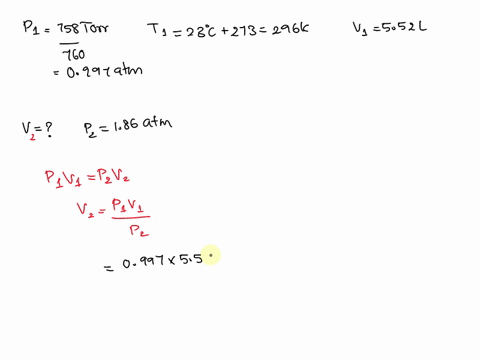 P1 = 758 Torr T1 = 23°C + 273 = 296k V1 = 5.52L
760
= 0.997 atm
V2 = ? P2 = 1.86 atm
P1V1 = P2V2
V2 = P1V1
P2
= 0.997 × 5.5